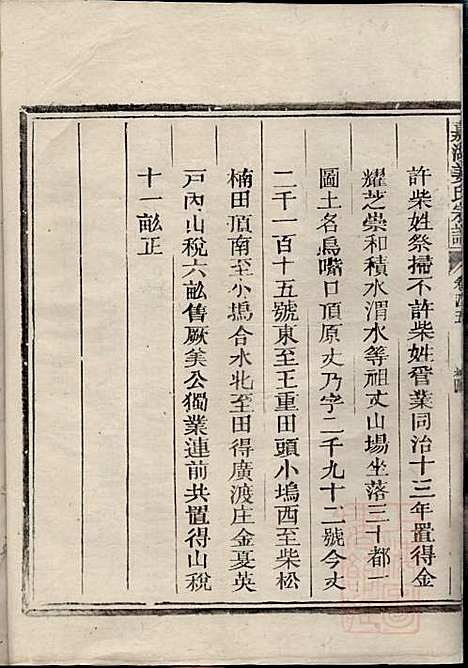 許柴姓祭掃不許柴姓管業同治十三年置得金
耀芝崇和積水渭水等祖丈山場坐落三十都一
圖土名鳥嘴口頂原丈乃字二千九十二號今丈
二千一百十五號東至王重田頭小塢西至柴松
楠田頂南至小塢合水北至田得廣渡庄金夏英
戸內山稅六畝售厥美公獨業連前共置得山稅
十一畝正